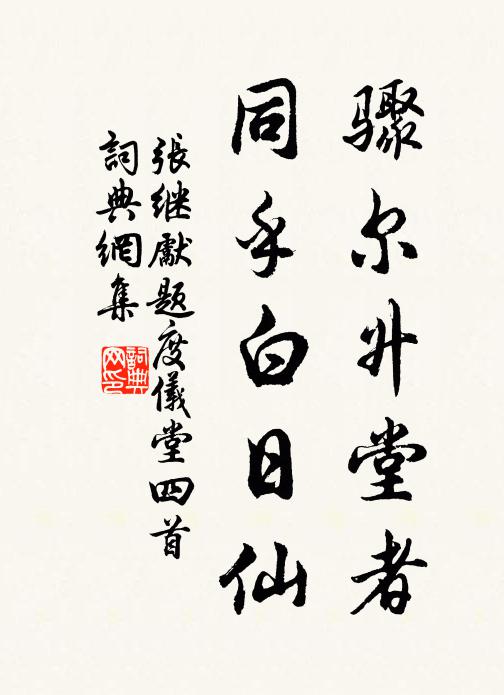 骤尔升堂者
同乎白日仙
張继獻题度儀堂四首
詞典網集
詞典
网印